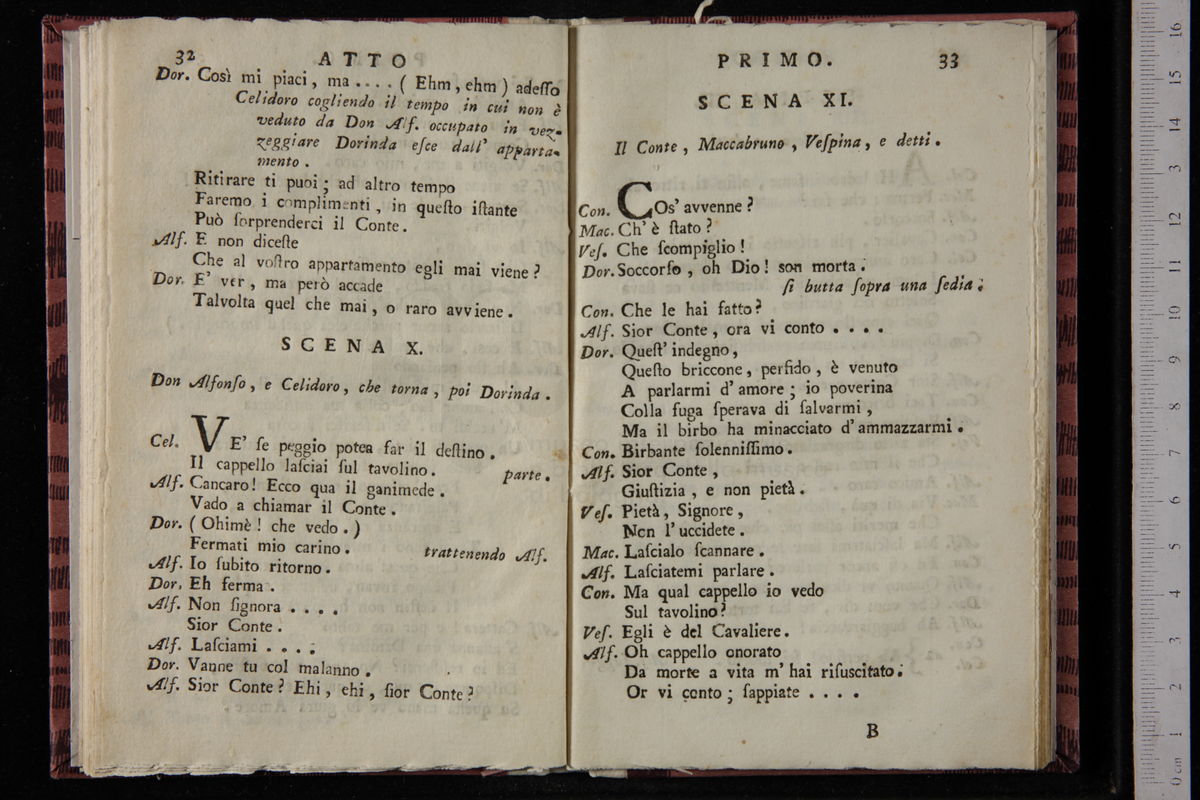 32 ATTO
Dor. Così mi piaci, ma .... ( Ehm, ehm ) adeſſo
Celidoro cogliendo il tempo in cui non è
veduto da Don Alf. occupato in vez-
zeggiare Dorinda eſce dall' apparta-
mento.
Ritirare ti puoi; ad altro tempo
Faremo i complimenti, in queſto iſtante
Può ſorprenderci il Conte.
Alf. E non diceſte
Che al voſtro appartamento egli mai viene?
Dor. E' ver, ma però accade
Talvolta quel che mai, o raro avviene.
SCENA X.
Don Alfonſo, e Celidoro, che torna, poi Dorinda.
Cel. VE' ſe peggio potea far il deſtino.
Il cappello laſciai ſul tavolino. parte.
Alf. Cancaro! Ecco qua il ganimede.
Vado a chiamar il Conte.
Dor. ( Ohimè! che vedo. )
Fermati mio carino. trattenendo Alf.
Alf. Io ſubito ritorno.
Dor. Eh ferma.
Alf. Non ſignora ....
Sior Conte.
Alf. Laſciami ....
Dor. Vanne tu col malanno.
Alf. Sior Conte? Ehi, ehi, ſior Conte?
PRIMO. 33
SCENA XI.
Il Conte, Maccabruno, Veſpina, e detti.
Con. COs' avvenne?
Mac. Ch' è ſtato?
Veſ. Che ſcompiglio!
Dor. Soccorſo, oh Dio! son morta.
ſi butta ſopra una ſedia.
Con. Che le hai fatto?
Alf. Sior Conte, ora vi conto ....
Dor. Queſt' indegno,
Queſto briccone, perfido, è venuto
A parlarmi d' amore; io poverina
Colla fuga ſperava di ſalvarmi,
Ma il birbo ha minacciato d' ammazzarmi.
Con. Birbante ſolenniſſimo.
Alf. Sior Conte,
Giuſtizia, e non pietà.
Veſ. Pietà, Signore,
Non l' uccidete.
Mac. Laſcialo ſcannare.
Alf. Laſciatemi parlare.
Con. Ma qual cappello io vedo
Sul tavolino?
Veſ. Egli è del Cavaliere.
Alf. Oh cappello onorato
Da morte a vita m' hai riſuscitato:
Or vi conto; ſappiate ....
B
0 cm 1 2 3 4 5 6 7 8 9 10 11 12 13 14 15 16